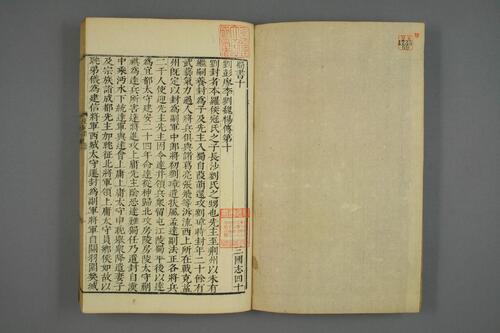 蜀書十
三國志四十
劉彭廖李劉魏楊傳第十
劉封者本羅侯寇氏之子長沙劉氏之甥也先主至荆州以未有
繼嗣養封為子及先主入蜀自葭萌還攻劉璋時封年二十餘有
武藝氣力過人將兵俱與諸葛亮張飛等泝流西上所在戰克益
州既定以封為副軍中郎將初劉璋遣扶風孟達副法正各將兵
二千人使迎先主先主因令達并領其衆留屯江陵蜀平後以達
為宜都太守建安二十四年命達從秭歸北攻房陵房陵太守蒯
祺為達兵所害達將進攻上庸先主陰恐達難獨任乃遣封自漢
中乘沔水下統達軍與達會上庸上庸太守申耽舉衆降遣妻子
及宗族詣成都先主加耽征北將軍領上庸太守員鄉侯如故以
耽弟儀為建信將軍西城太守遷封為副軍將軍自關羽圍樊城